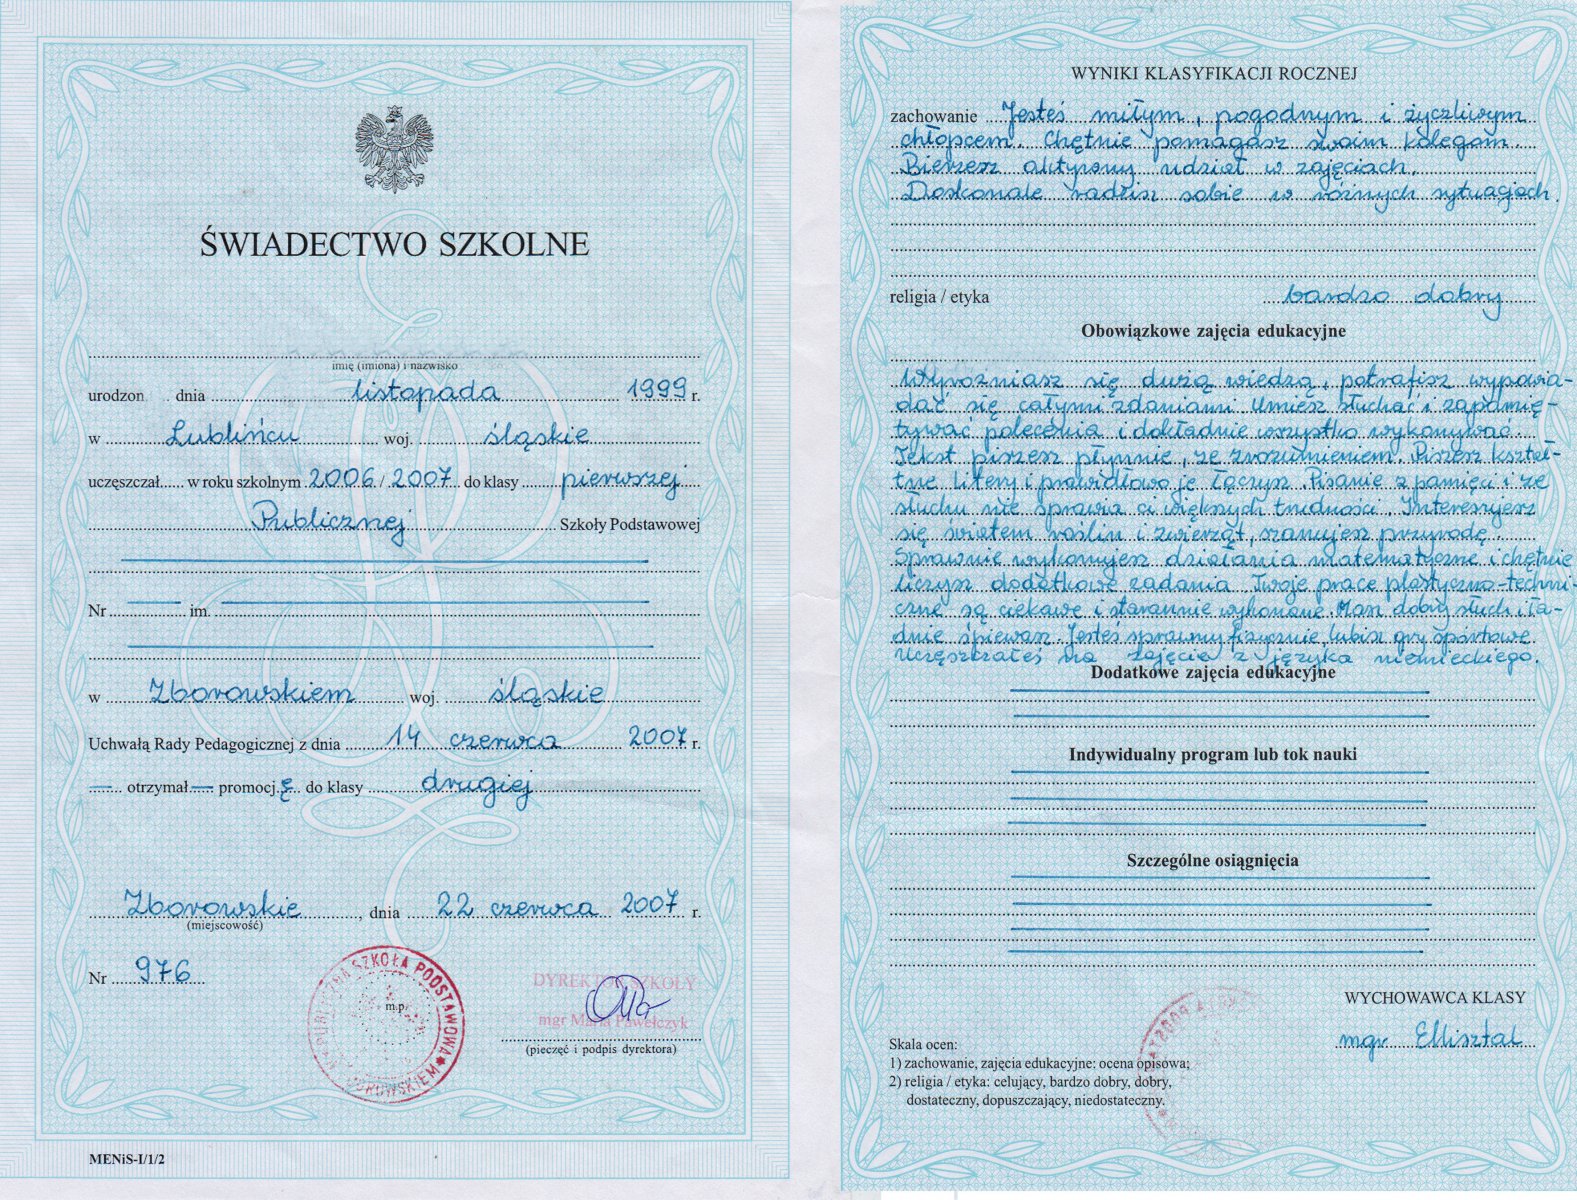 ŚWIADECTWO SZKOLNE
imię (imiona) i nazwisko
urodzon dnia listopada 1999 r.
w Lublińcu woj. śląskie
uczęszczał w roku szkolnym 2006 / 2007 do klasy pierwszej
Publicznej Szkoły Podstawowej
Nr im.
w Zborowskiem woj. śląskie
Uchwałą Rady Pedagogicznej z dnia 14 czerwca 2007 r.
otrzymał promocję do klasy drugiej
Zborowskie, dnia 22 czerwca 2007 r.
(miejscowość)
Nr 976
PUBLICZNA SZKOŁA PODSTAWOWA ZBOROWSKIEM
m.p.
DYREKTOR SZKOŁY
mgr Maria Pawełczyk
(pieczęć i podpis dyrektora)
MENiS-I/1/2
WYNIKI KLASYFIKACJI ROCZNEJ
zachowanie Jesteś miłym, pogodnym i życzliwym
chłopcem. Chętnie pomagasz swoim kolegom.
Bierzesz aktywny udział w zajęciach.
Doskonale radzisz sobie w różnych sytuacjach.
religia / etyka bardzo dobry
Obowiązkowe zajęcia edukacyjne
Wyróżniasz się dużą wiedzą, potrafisz wypowia-
dać się całymi zdaniami. Umiesz słuchać i zapamię-
tywać polecenia i dokładnie wszystko wykonywać.
Tekst piszesz płynnie, ze zrozumieniem. Piszesz kształ-
tne litery i prawidłowo je łączysz. Pisanie z pamięci i ze
słuchu nie sprawia ci większych trudności. Interesujesz
się światem roślin i zwierząt, szanujesz przyrodę.
Sprawnie wykonujesz działania matematyczne i chętnie
liczysz dodatkowe zadania. Twoje prace plastyczno-techni-
czne są ciekawe i starannie wykonane. Masz dobry słuch i ła-
dnie śpiewasz. Jesteś sprawny fizycznie, lubisz gry sportowe.
Uczęszczałeś na zajęcia z języka niemieckiego.
Dodatkowe zajęcia edukacyjne
Indywidualny program lub tok nauki
Szczególne osiągnięcia
WYCHOWAWCA KLASY
mgr
Skala ocen:
1) zachowanie, zajęcia edukacyjne: ocena opisowa;
2) religia / etyka: celujący, bardzo dobry, dobry,
dostateczny, dopuszczający, niedostateczny.